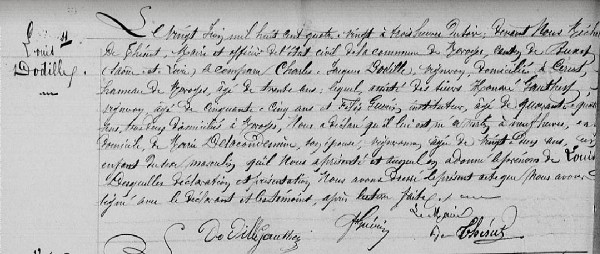 N° 11
Louis
Dodille
Le vingt Juin mil huit cent quatre-vingt à trois heures du soir, Devant Nous
de Thésut, Maire et officier de l'état civil de la commune de canton de
(Saône-et-Loire) a comparu Charles-Jacques Dodille, vigneron, domicilié à
hameau de âgé de trente ans; lequel, assisté des sieurs Gauthey
vigneron âgé de cinquante-cinq ans et instituteur, âgé de quarante-quatre
ans, tous deux domiciliés à Nous a déclaré qu'il lui est né à neuf heures, en
domicile, de Marie Delacondemine, son épouse, vigneronne, âgée de vingt-deux ans, un
enfant du sexe masculin qu'il Nous a présenté et auquel on a donné le prénom de Louis
Desquelles déclaration et présentation, Nous avons dressé le présent acte que Nous avons
signé avec le déclarant et les témoins, après lecture faite.
Le Maire
Dodille Gauthey de Thésut